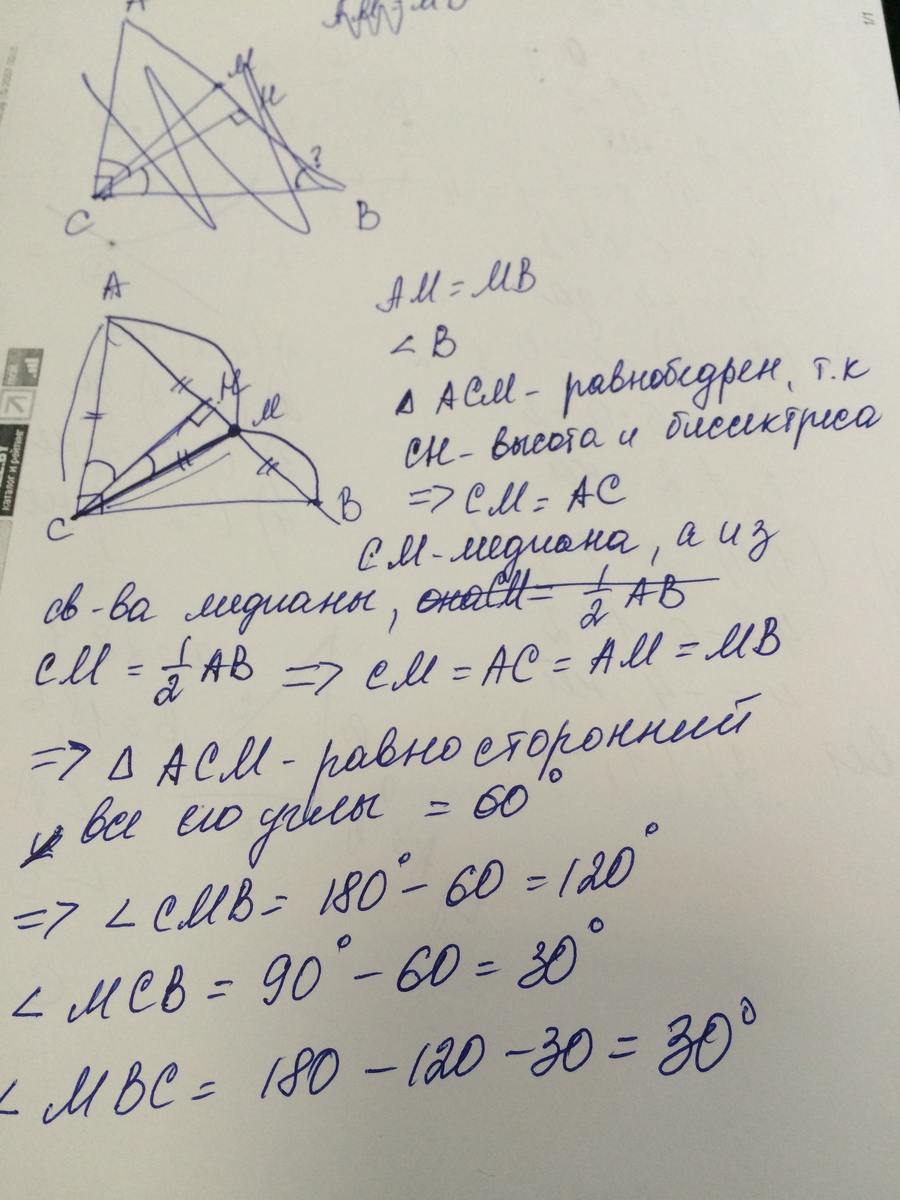 1/1
A
M
H
?
C
B
A
H
M
C
B
AM = MB
∠ B
Δ ACM - равнобедрен, т.к
CH - высота и биссектриса
=> CM = AC
CM - медиана, а из
св-ва медианы, она CM = 1/2 AB
CM = 1/2 AB => CM = AC = AM = MB
=> Δ ACM - равносторонний
и все его углы = 60°
=> ∠ CMB = 180° - 60 = 120°
∠ MCB = 90° - 60 = 30°
∠ MBC = 180 - 120 - 30 = 30°
каталог и рейтинг